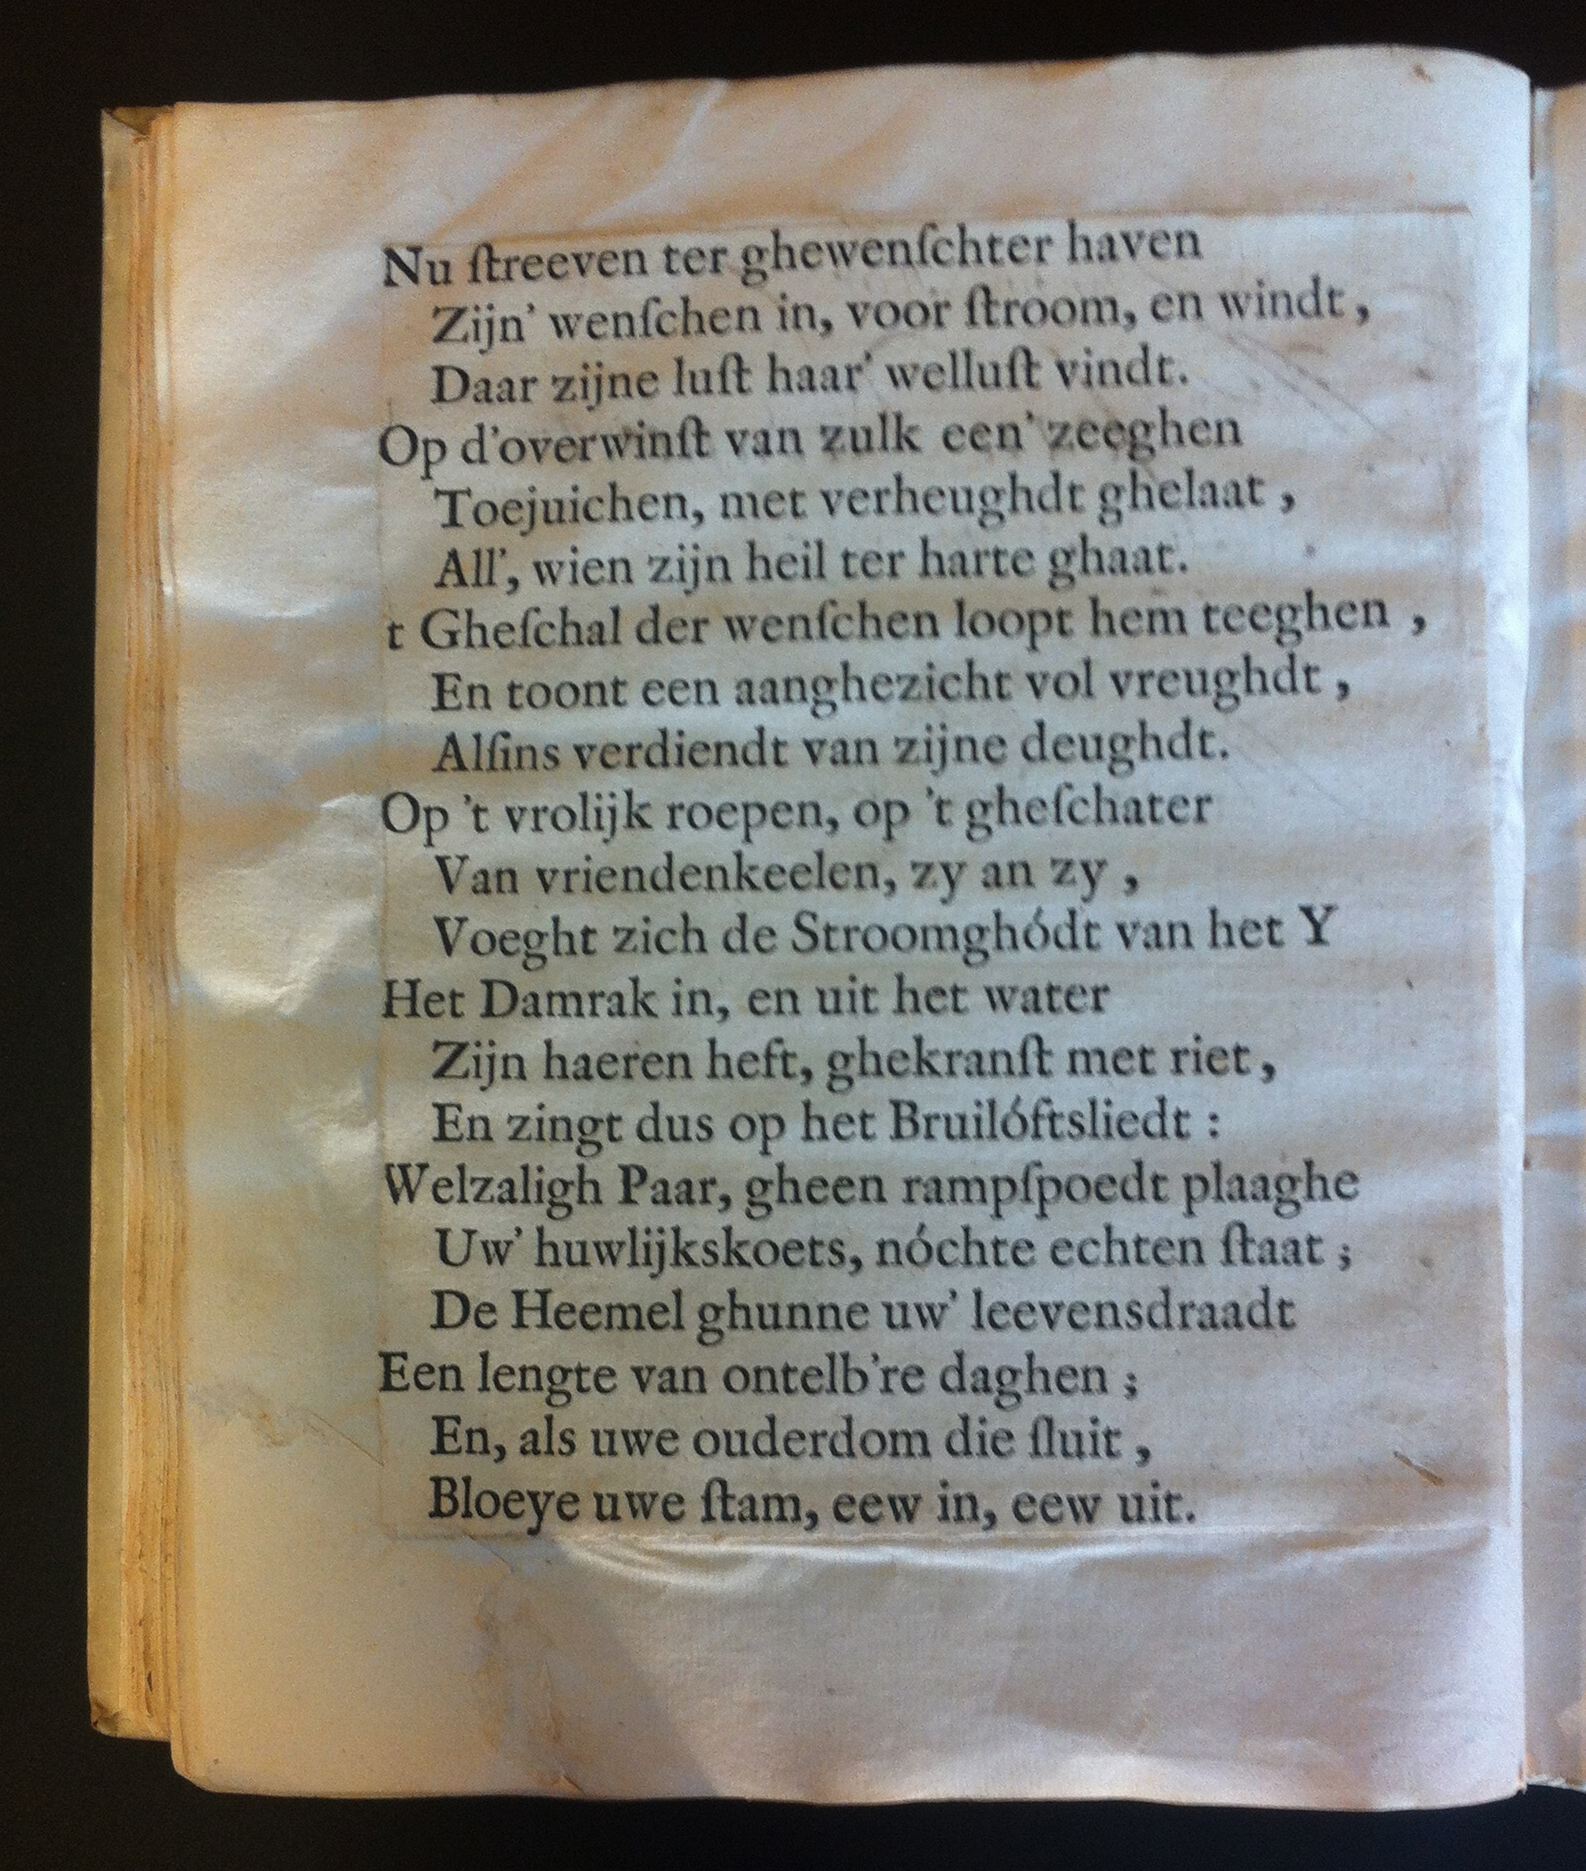 Nu ſtreeven ter ghewenſchter haven
Zijn' wenſchen in, voor ſtroom, en windt,
Daar zijne luſt haar' welluſt vindt.
Op d'overwinſt van zulk een' zeeghen
Toejuichen, met verheughdt ghelaat,
All', wien zijn heil ter harte ghaat.
t Gheſchal der wenſchen loopt hem teeghen,
En toont een aanghezicht vol vreughdt,
Alſins verdiendt van zijne deughdt.
Op 't vrolijk roepen, op 't gheſchater
Van vriendenkeelen, zy an zy,
Voeght zich de Stroomghódt van het Y
Het Damrak in, en uit het water
Zijn haeren heft, ghekranſt met riet,
En zingt dus op het Bruilóftsliedt:
Welzaligh Paar, gheen rampſpoedt plaaghe
Uw' huwlijkskoets, nóchte echten ſtaat;
De Heemel ghunne uw' leevensdraadt
Een lengte van ontelb're daghen;
En, als uwe ouderdom die ſluit,
Bloeye uwe ſtam, eew in, eew uit.